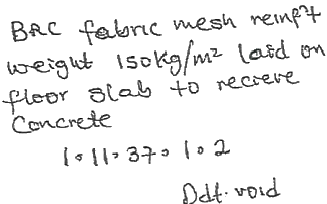 BRC fabric mesh reinf't
weight 150kg/m² laid on
floor slab to recieve
Concrete
Ddt. void